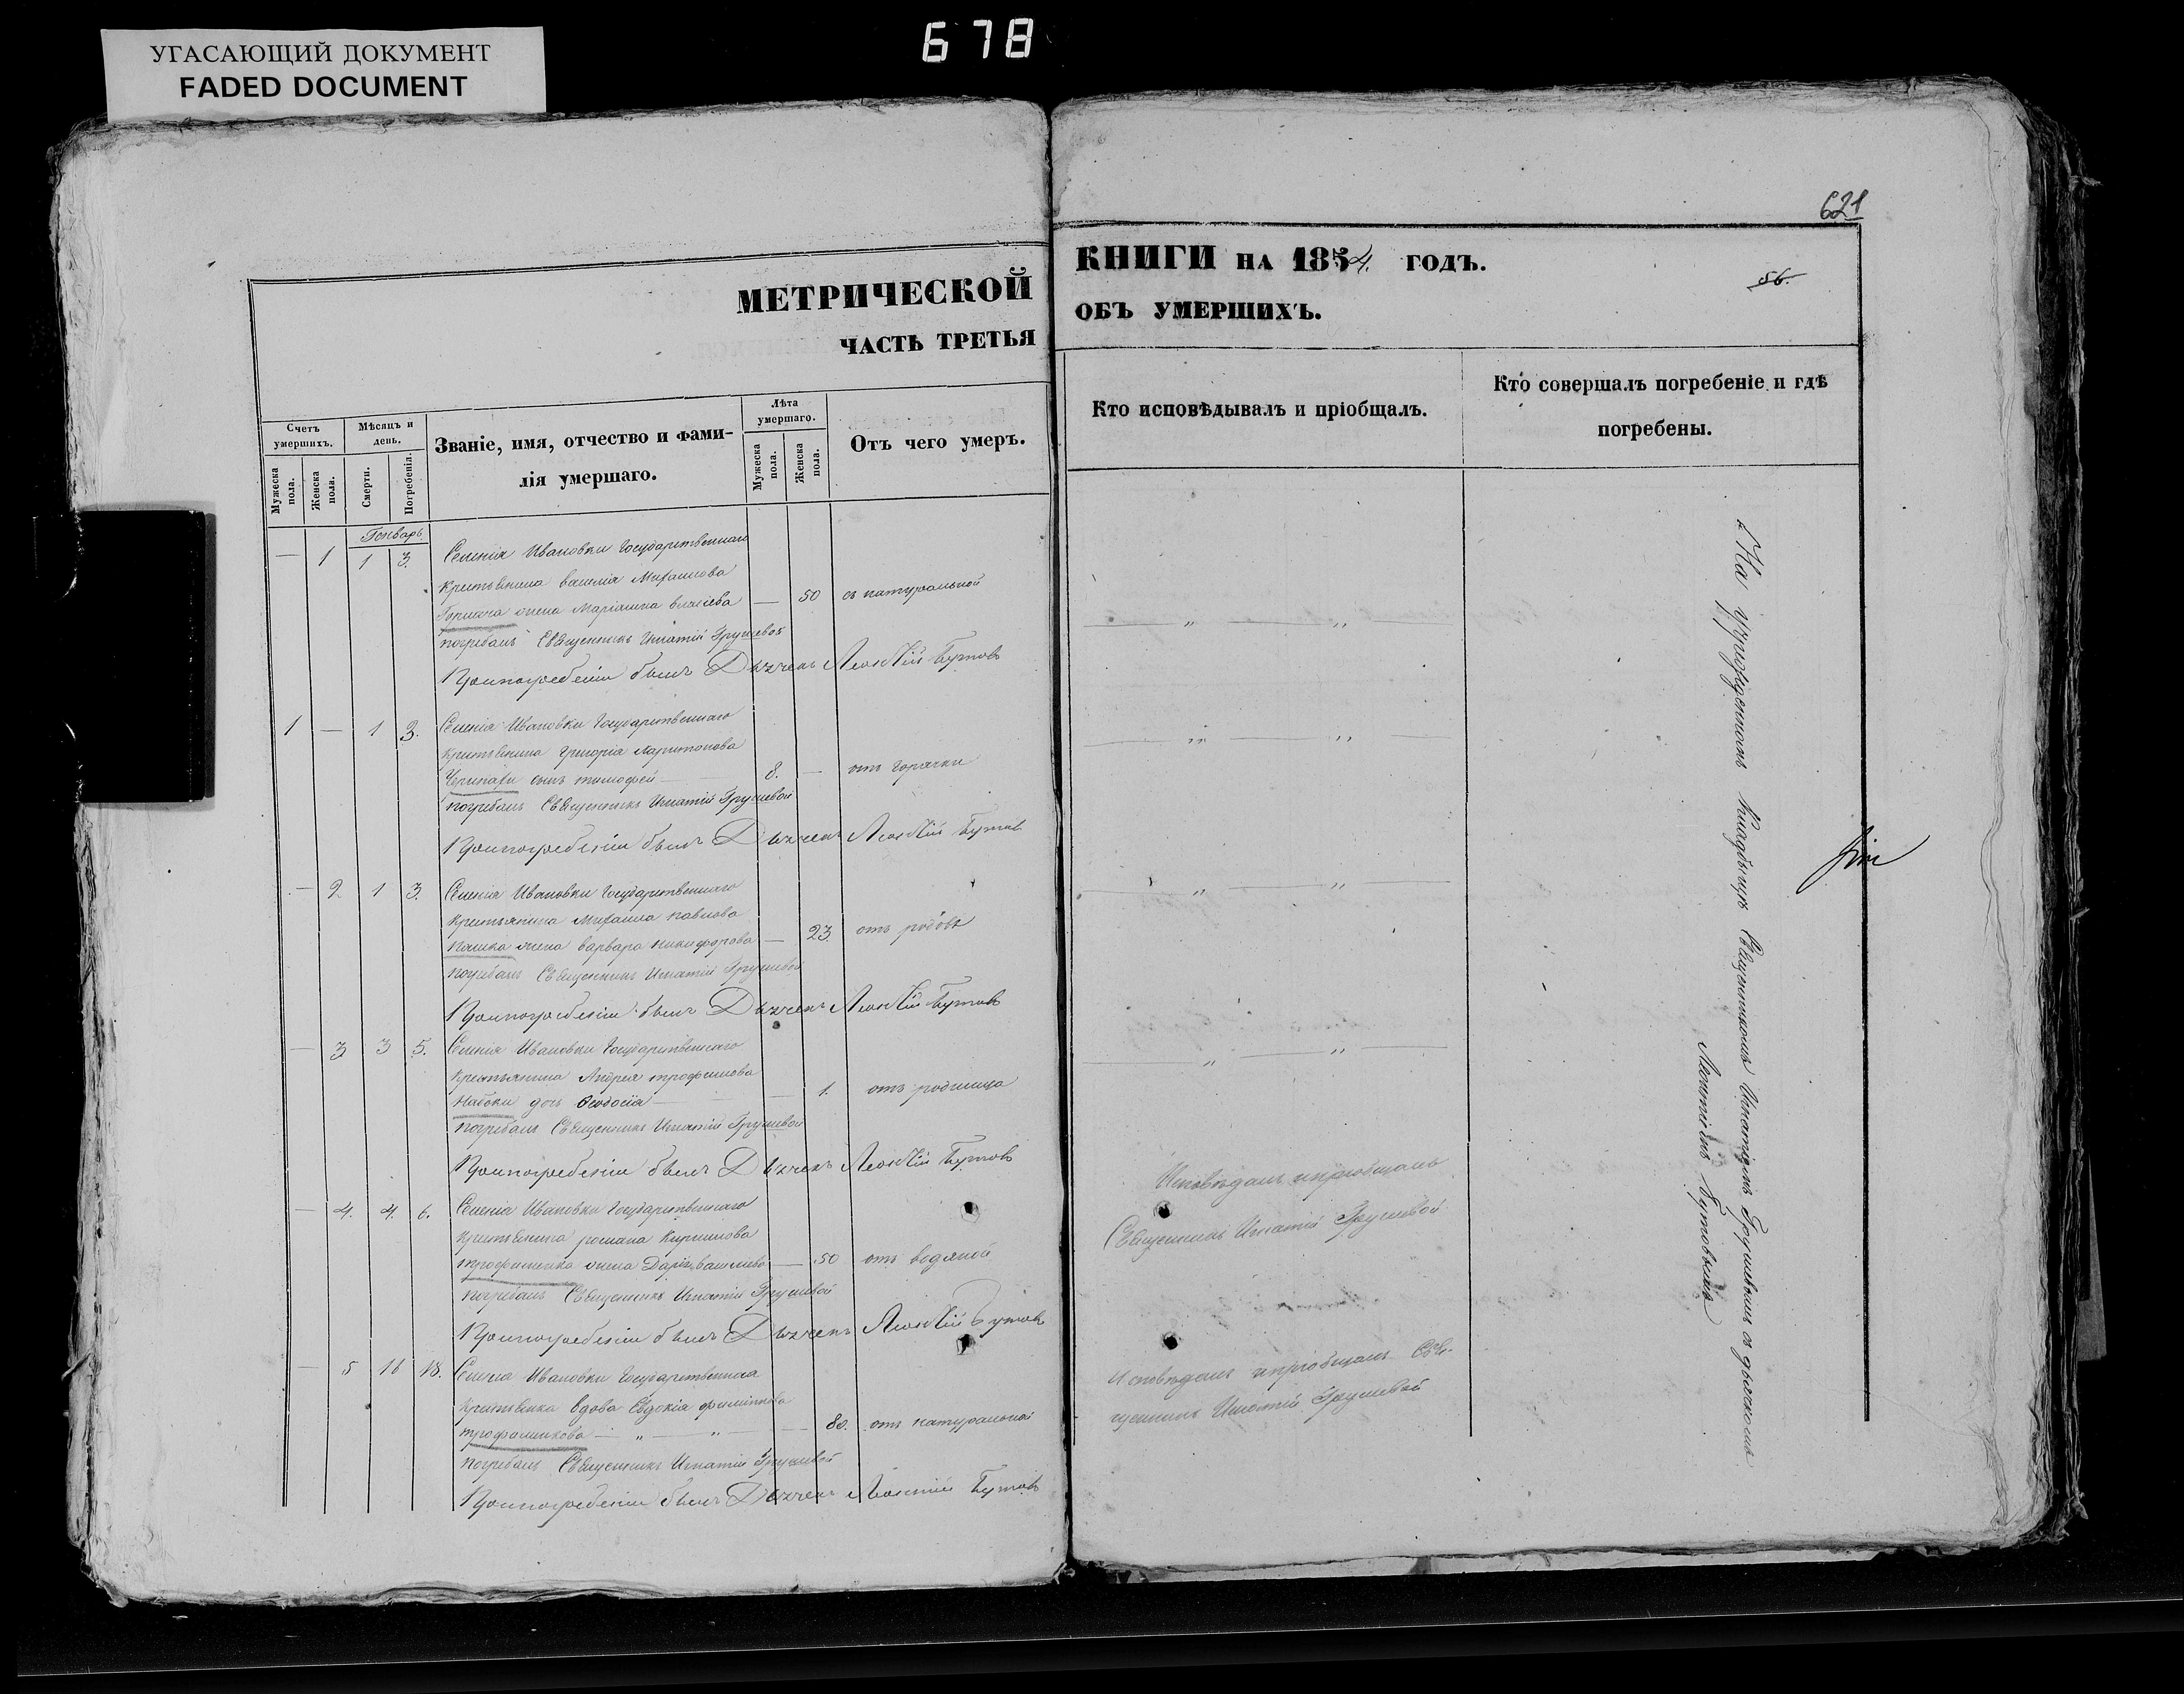 УГАСАЮЩИЙ ДОКУМЕНТ
FADED DOCUMENT
678
621
МЕТРИЧЕСКОЙ
ЧАСТЬ ТРЕТЬЯ
КНИГИ НА 1854. ГОДЪ.
56.
ОБЪ УМЕРШИХЪ.
Счетъ умершихъ.
Мужеска пола.
Женска пола.
Мѣсяцъ и день.
Смерти.
Погребенія.
Званіе, имя, отчество и фами-
лія умершаго.
Лѣта умершаго.
Мужеска пола.
Женска пола.
Отъ чего умеръ.
Кто исповѣдывалъ и пріобщалъ.
Кто совершалъ погребеніе и гдѣ
погребены.
Генварь
— 1 1 3. Селенія Ивановки Государственнаго
крестьянина василія Михаилова
жена Маріанна власіева — 50 съ натуральной
погребалъ Священникъ Игнатій Грушевой
При погребеніи былъ Дьячекъ Леонтій Бутовъ
1 — 1 3. Селенія Ивановки Государственнаго
крестьянина григорія харитонова
сынъ тимофей — 8. — отъ горячки
погребалъ Священникъ Игнатій Грушевой
При погребеніи былъ Дьячекъ Леонтій Бутовъ
— 2 1 3. Селенія Ивановки Государственнаго
крестьянина Михаила павлова
жена варвара никифорова — 23 отъ родовъ
погребалъ Священникъ Игнатій Грушевой
При погребеніи былъ Дьячекъ Леонтій Бутовъ
— 3 3 5. Селенія Ивановки Государственнаго
крестьянина Андрея трофимова
Набоки дочь Феодосія — — 1. отъ родимца
погребалъ Священникъ Игнатій Грушевой
При погребеніи былъ Дьячекъ Леонтій Бутовъ
— 4. 4. 6. Селенія Ивановки Государственнаго
крестьянина романа Кирилова
трофименка жена Дарія васильева — 50 отъ водяной
погребалъ Священникъ Игнатій Грушевой
При погребеніи былъ Дьячекъ Леонтій Бутовъ
— 5 16 18. Селенія Ивановки Государственная
крестьянка вдова Евдокія филипова
трофименкова — „ — „ — 80. отъ натуральной
погребалъ Священникъ Игнатій Грушевой
При погребеніи былъ Дьячекъ Леонтій Бутовъ
— „ — „ —
— „ — „ —
— „ — „ —
— „ — „ —
Исповѣдалъ и пріобщалъ
Священникъ Игнатій Грушевой
Исповѣдалъ и пріобщалъ Свя-
щенникъ Игнатій Грушевой
На учрежденномъ Кладбищѣ Священникомъ Игнатіемъ Грушевымъ съ дьячкомъ
Леонтіемъ Бутовымъ